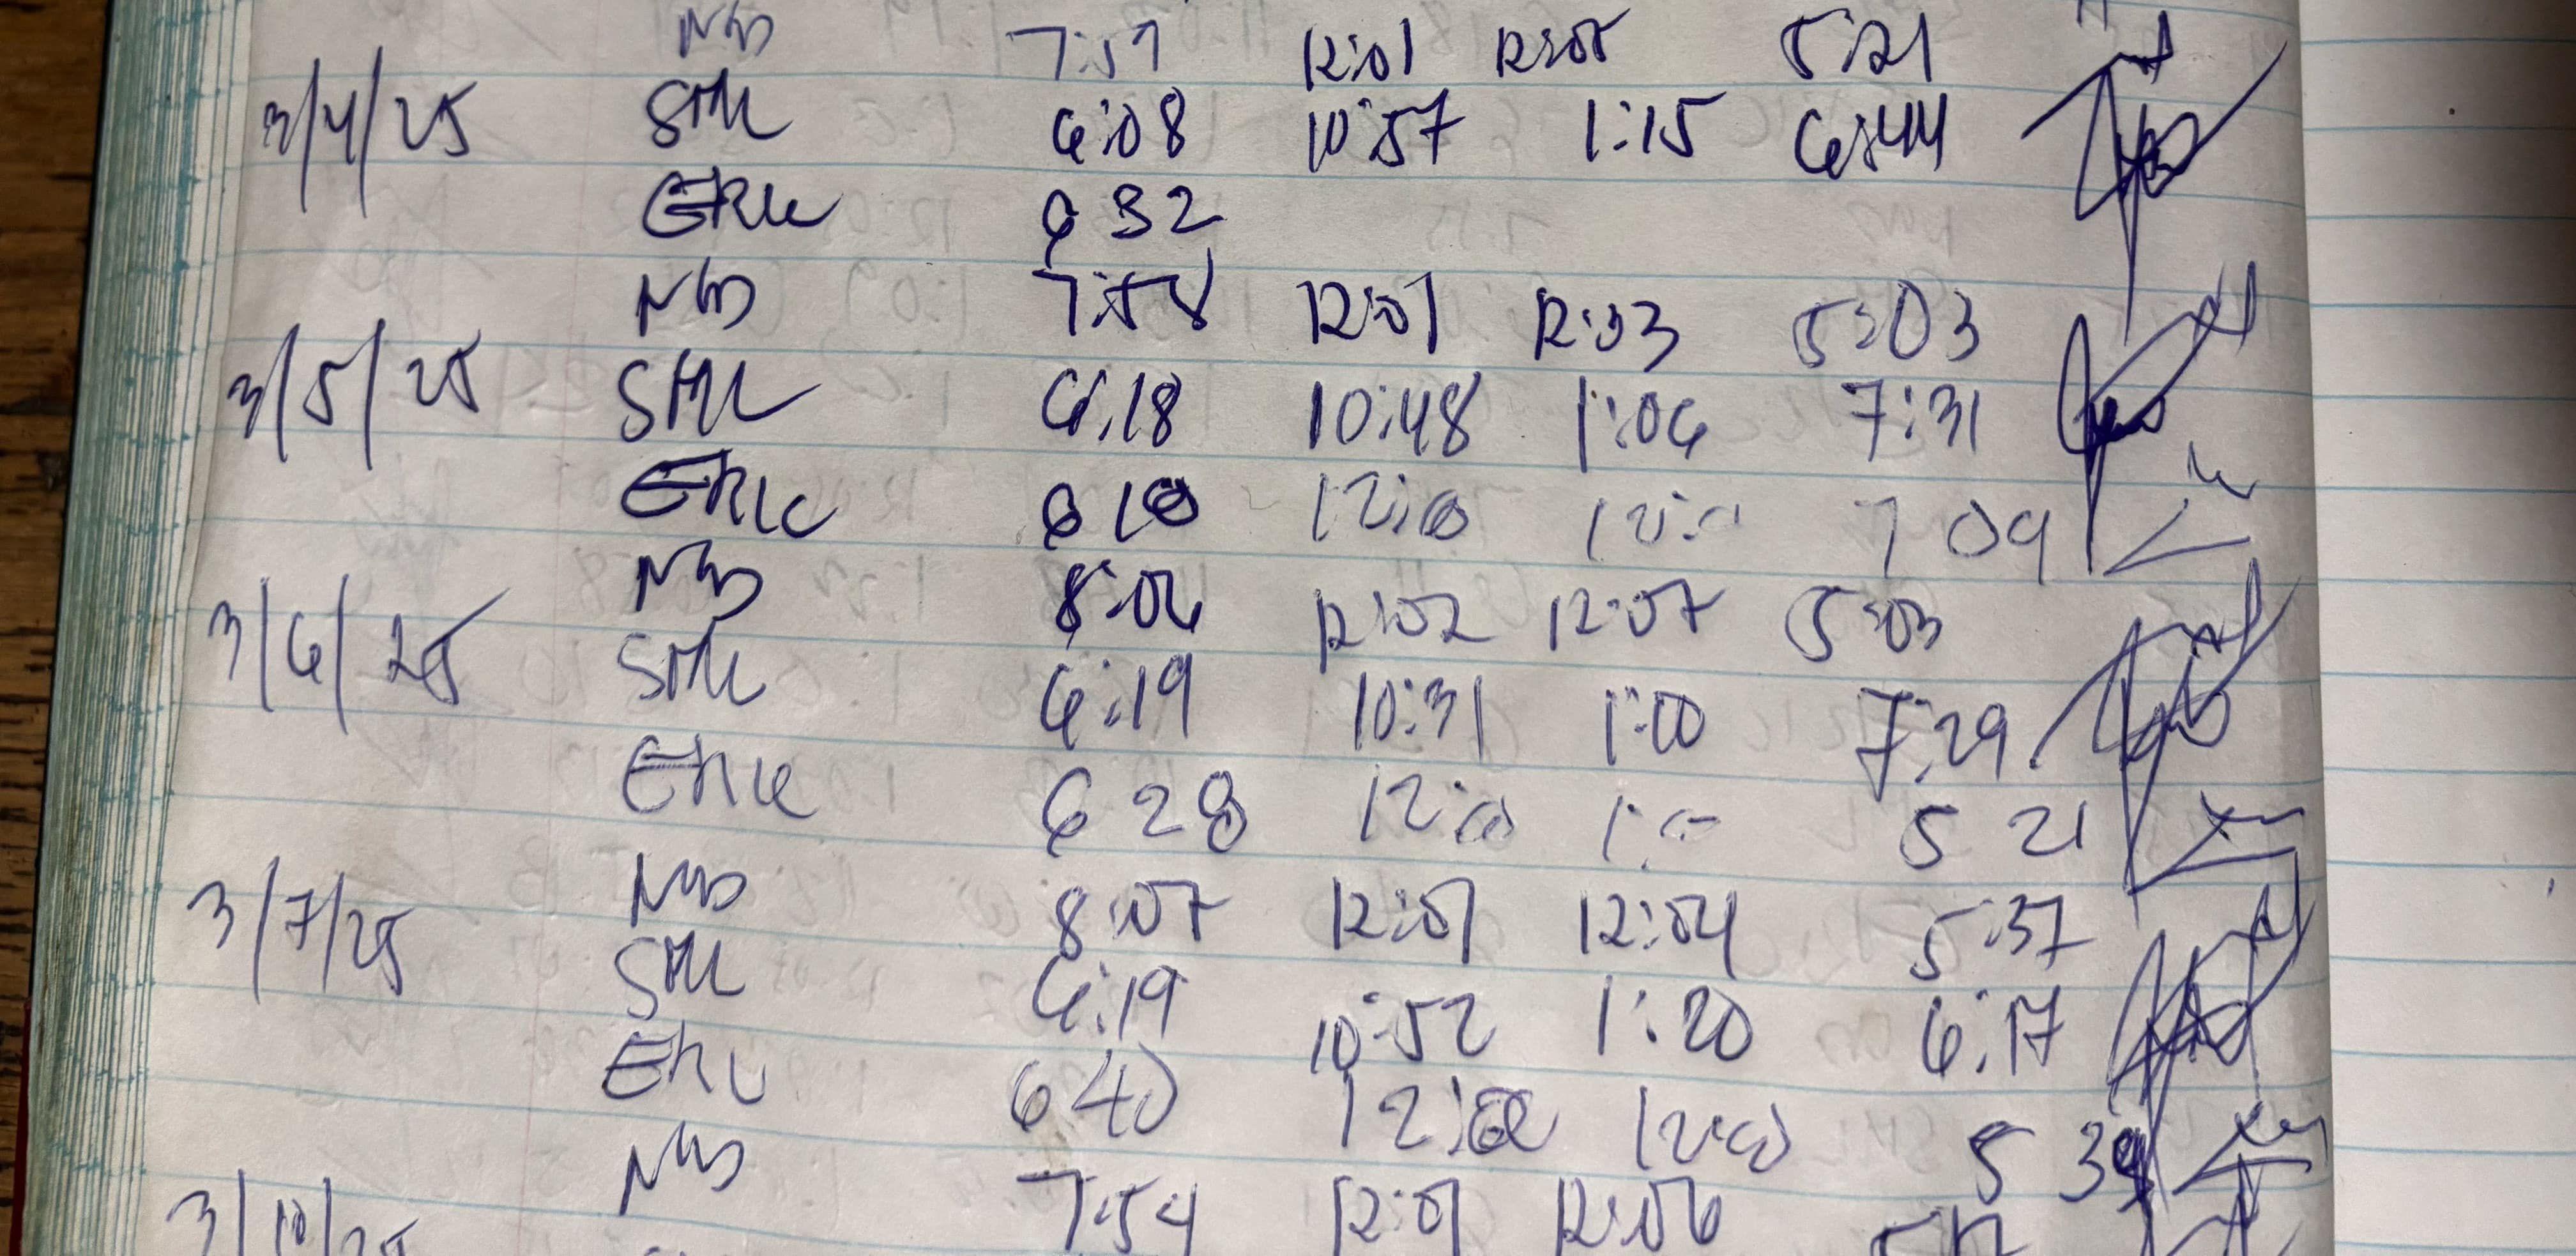 NB 7:57 12:01 12:05 5:21
3/4/25 SML 6:08 10:57 1:15 6:44
ERIC 6 32
NB 7:58 12:01 12:03 5:03
3/5/25 SML 6:18 10:48 1:06 7:31
ERIC 6 10 12:00 7 09
NB 8:06 12:02 12:07 5:03
3/6/25 SML 6:19 10:31 1:00 7:29
ERIC 6 28 12:00 1:00 5 21
NB 8:07 12:01 12:04 5:37
3/7/25 SML 6:19 10:52 1:20 6:17
ERIC 6 40 12:00 12:00 5 39
NB 7:54 12:01 12:06
3/10/25